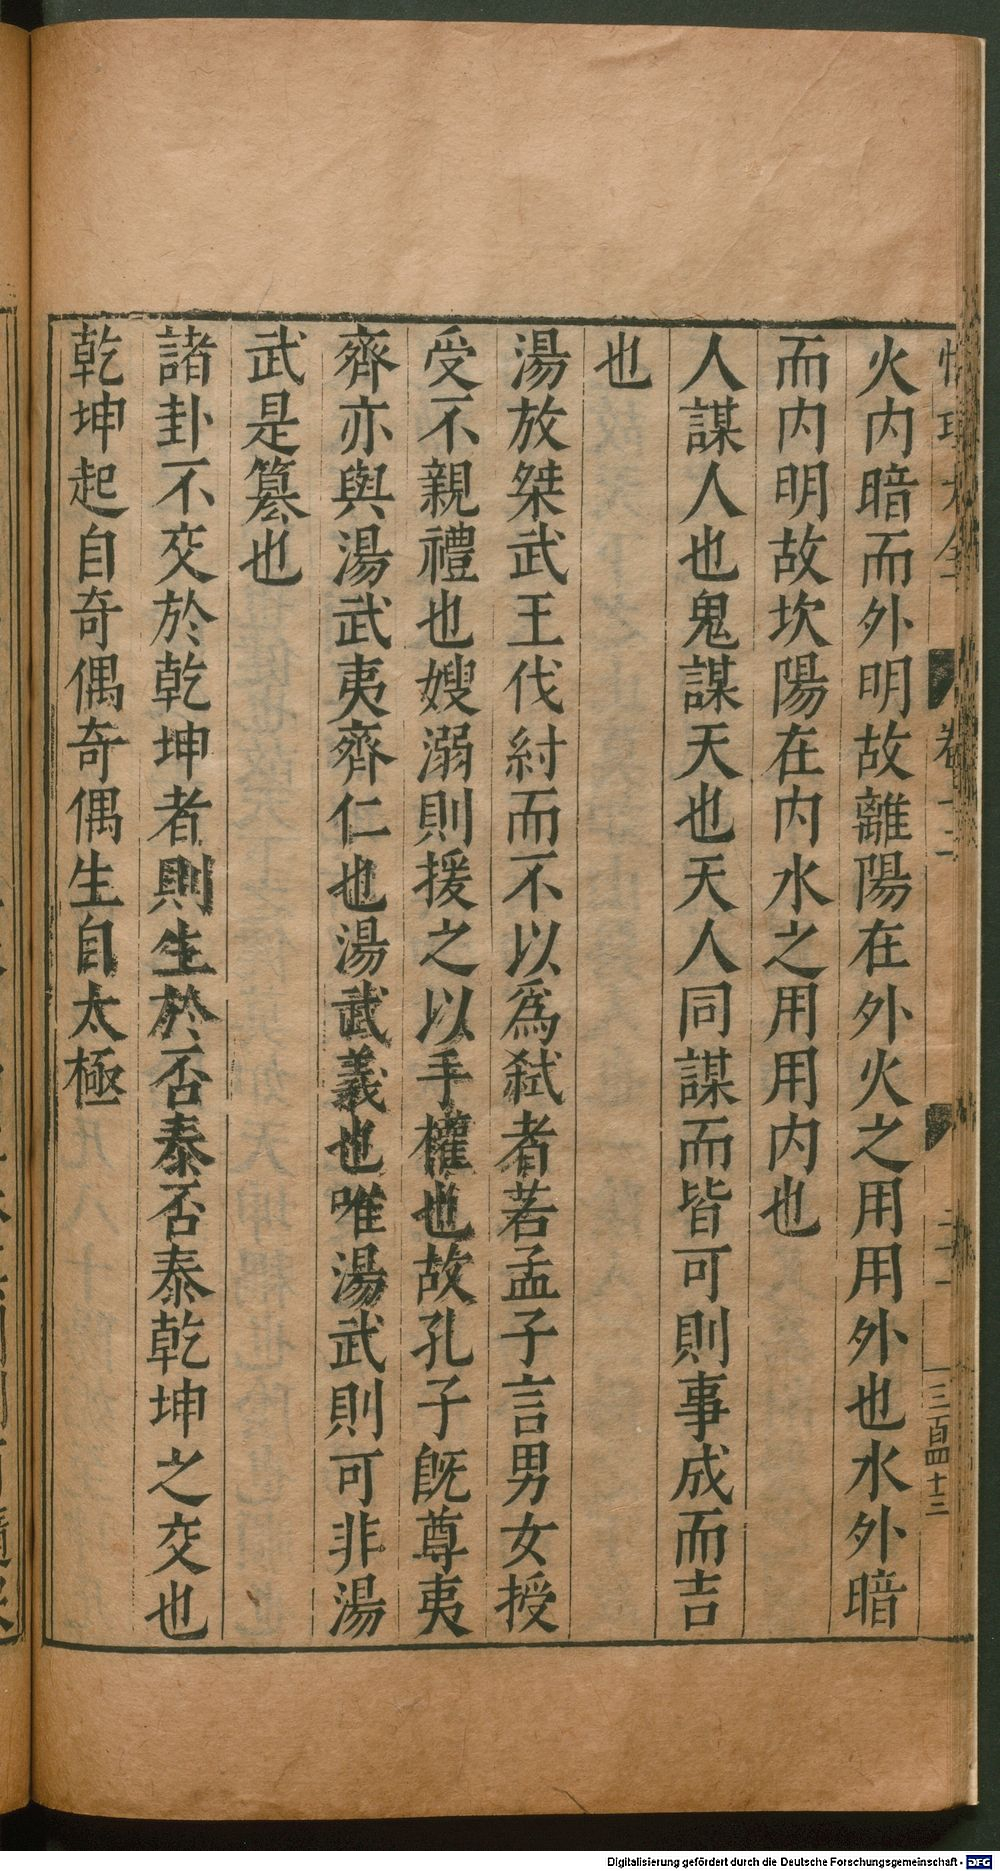 火内暗而外明故離陽在外火之用用外也水外暗
而内明故坎陽在内水之用用内也
人謀人也鬼謀天也天人同謀而皆可則事成而吉
也
湯放桀武王伐紂而不以爲弑者若孟子言男女授
受不親禮也嫂溺則援之以手權也故孔子既尊夷
齊亦與湯武夷齊仁也湯武義也唯湯武則可非湯
武是簒也
諸卦不交於乾坤者則生於否泰否泰乾坤之交也
乾坤起自奇偶奇偶生自太極
三百四十三
Digitalisierung gefördert durch die Deutsche Forschungsgemeinschaft - DFG